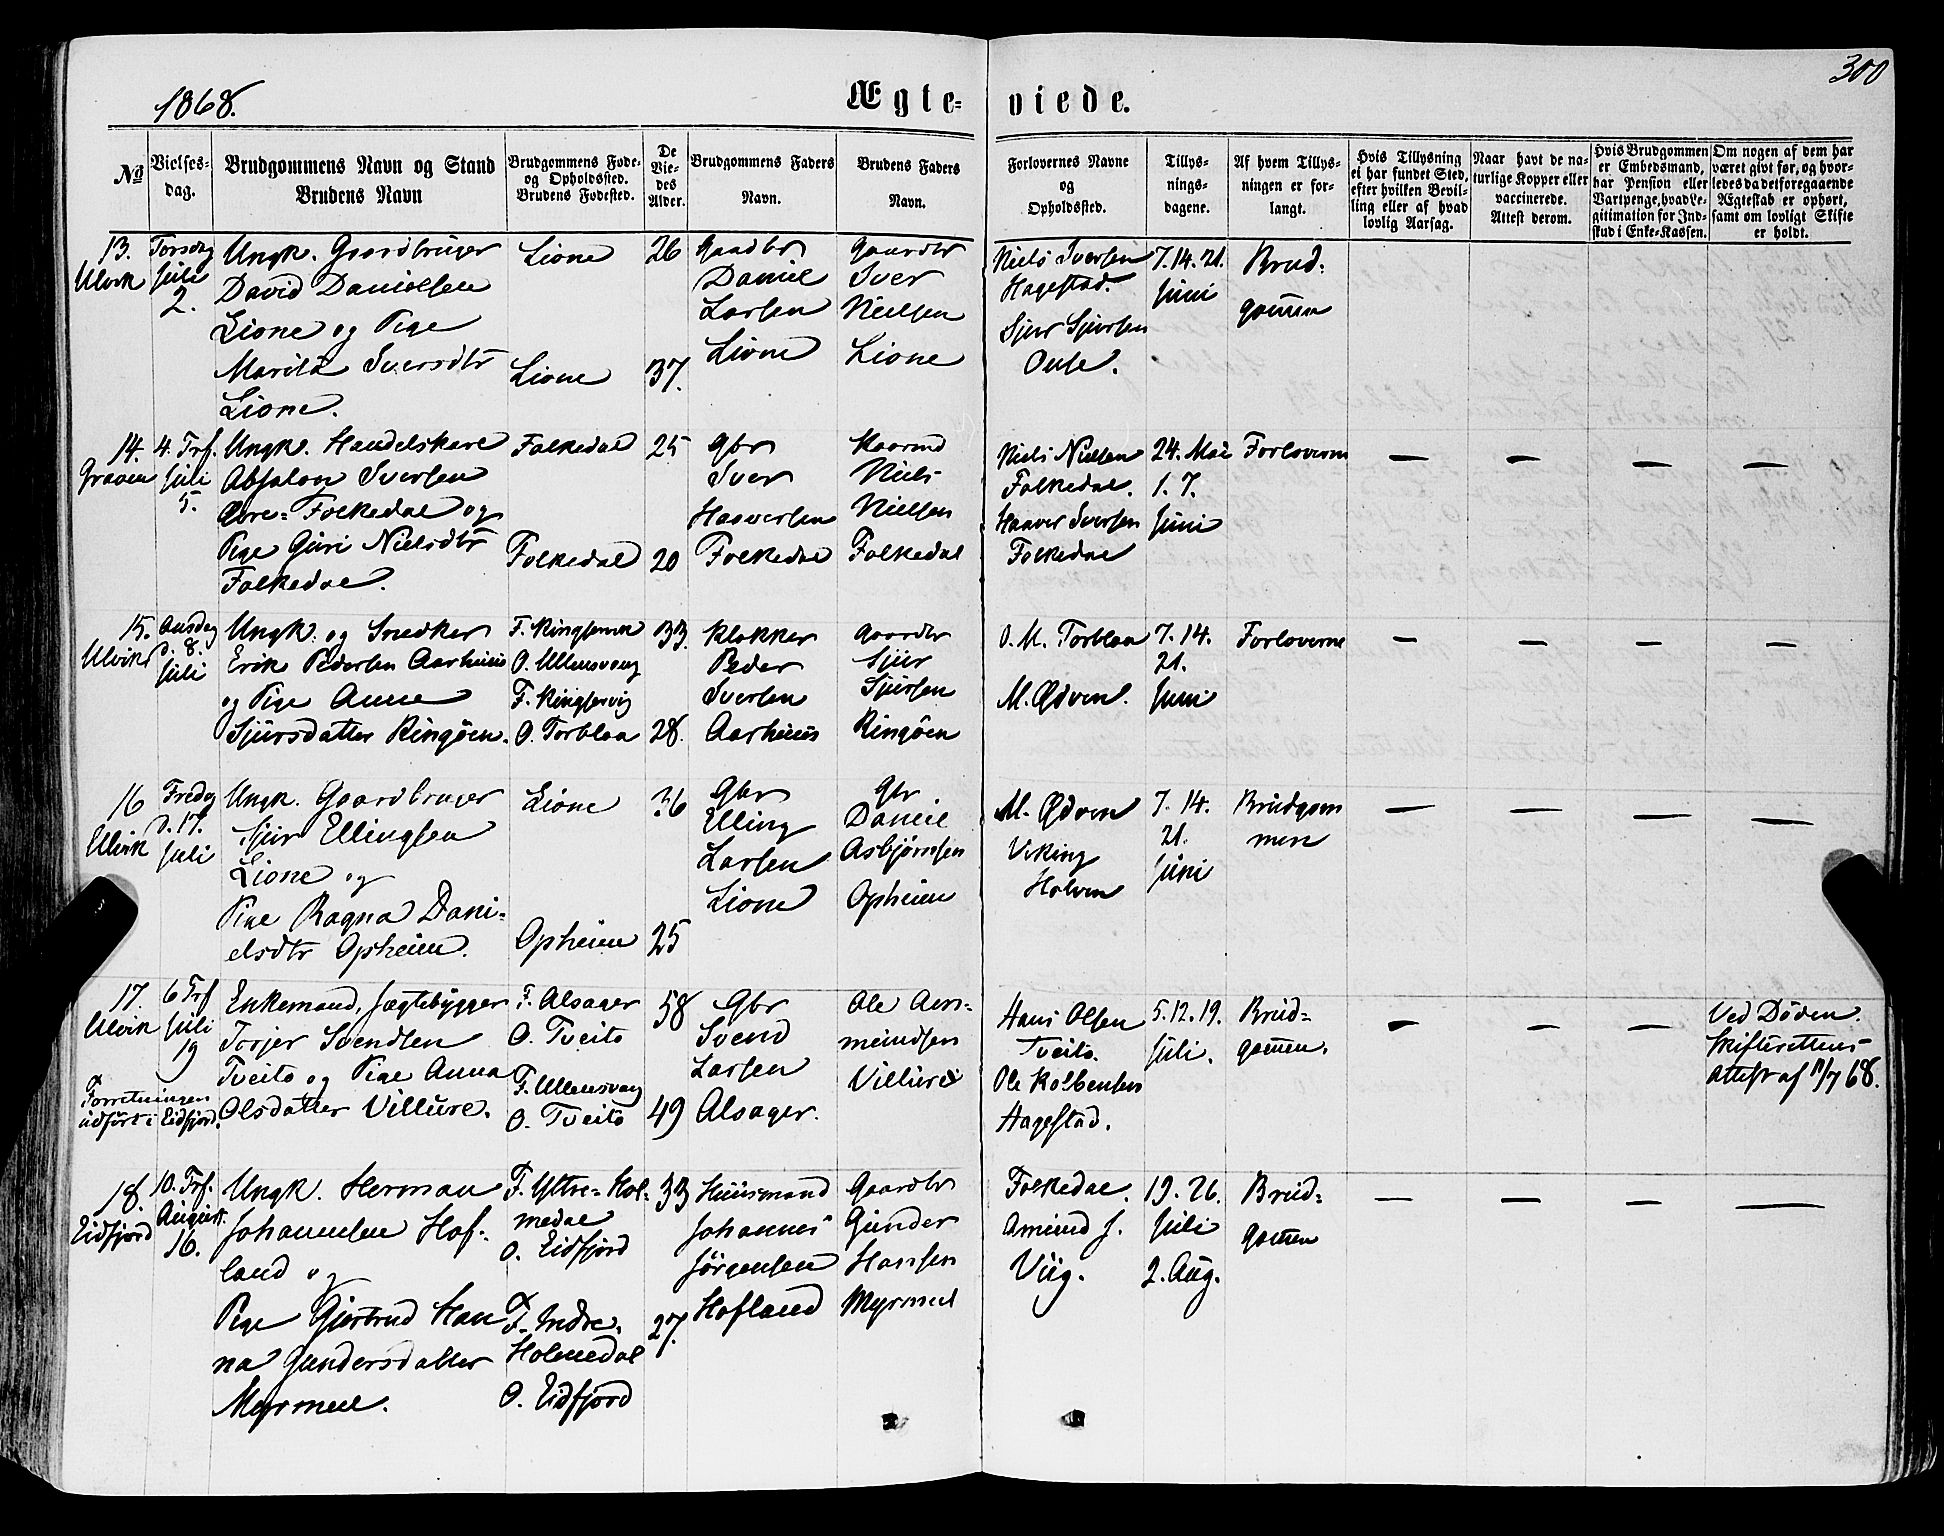 1868.
Ægte-
viede.
300
No
Vielses-
dag.
Brudgommens Navn og Stand
Brudens Navn
Brudgommens Føde-
og Opholdssted.
Brudens Fødested.
De
Vie-
des
Alder.
Brudgommens Faders
Navn.
Brudens Faders
Navn.
Forlovernes Navne
og
Opholdssted.
Tillys-
nings-
dagene.
Af hvem Tillys-
ningen er for-
langt.
Hvis Tillysning
ei har fundet Sted,
efter hvilken Bevil-
ling eller af hvad
lovlig Aarsag.
Naar havt de na-
turlige Kopper eller
vaccinerede.
Attest derom.
Hvis Brudgommen
er Embedsmand,
har Pension eller
Vartpenge, hvad Le-
gitimation for Ind-
skud i Enke-Kassen.
Om nogen af dem har
været givt før, og hvor-
ledes da det foregaaende
Ægteskab er ophørt,
samt om lovligt Skifte
er holdt.
13.
Ulvik
Torsdag
Juli
2.
Ungk. Gaardbruger
David Danielsen
Lione og Pige
Marita Iversdtr
Lione.
Lione
Lione
26
37.
Gaardbr
Daniel
Larsen
Lione
Gaardbr
Iver
Nielsen
Lione
Niels Iversen
Hagestad.
Sjur Sjursen
7. 14. 21.
Juni
Brud-
gommen
14.
Graven
4. Trf.
Juli
5.
Ungk. Handelskarl
Absalon Iversen
Øvre-Folkedal og
Pige Guri Nielsdtr
Folkedal.
Folkedal
Folkedal
25
20
Gbr
Iver
Haaversen
Folkedal
Niels
Nielsen
Folkedal
Niels Nielsen
Folkedal.
Haaver Iversen
Folkedal
24. Mai
1. 7.
Juni
Forloverne
— — — —
15.
Ulvik
Onsdag
d. 8.
Juli
Ungk. og Snedker
Erik Pedersen Aarhuus
og Pige Anna
Sjursdatter Ringøen.
O. Ullensvang
O. Torblaa
33.
28.
Klokker
Peder
Iversen
Aarhuus
Gaardbr
Sjur
Sjursen
Ringøen
O. M. Torblaa
M. Ødven.
7. 14.
21.
Juni
Forloverne
— — — —
16
Ulvik
Fredag
d. 17.
Juli
Ungk. Gaardbruger
Sjur Ellingsen
Lione og
Pige Ragna Dani-
elsdtr Opheim.
Lione
Opheim
36
25
Gbr
Elling
Larsen
Lione
Gbr
Daniel
Asbjørnsen
Opheim
M. Ødven
Viking
Holven
7. 14.
21.
Juni
Brudgom
men
— — — —
17.
Ulvik
6 Trf
Juli
19
Forretningen
udført i Eidfjord.
Enkemand, Jægtebygger
Torjer Svendsen
Tveito og Pige Anna
Olsdatter Villure.
F. Alsager
O. Tveito
F. Ullensvang
O. Tveito
58
49
Gbr
Svend
Larsen
Alsager.
Ole Am-
mundsen
Villure
Hans Olsen
Tveito.
Ole Kolbensen
Hagestad.
5. 12. 19.
Juli.
Brud-
gommen.
— — —
Ved Døden.
Skifterettens
Attest af 11/7 68.
18.
Eidfjord
10. Trf.
August.
16.
Ungk. Herman
Johannesen Hof-
land og
Pige Gjertrud Han
na Gundersdatter
Myrmel.
F. Yttre-Hol-
medal
O. Eidfjord
F. Indre-
Holmedal
O. Eidfjord
33
27.
Huusmand
Johannes
Jörgensen
Hofland
Gaardbr
Gunder
Hansen
Myrmel
Folkedal.
Amund J.
Viig.
19. 26.
Juli
2. Aug.
Brud-
gommen
— — — —